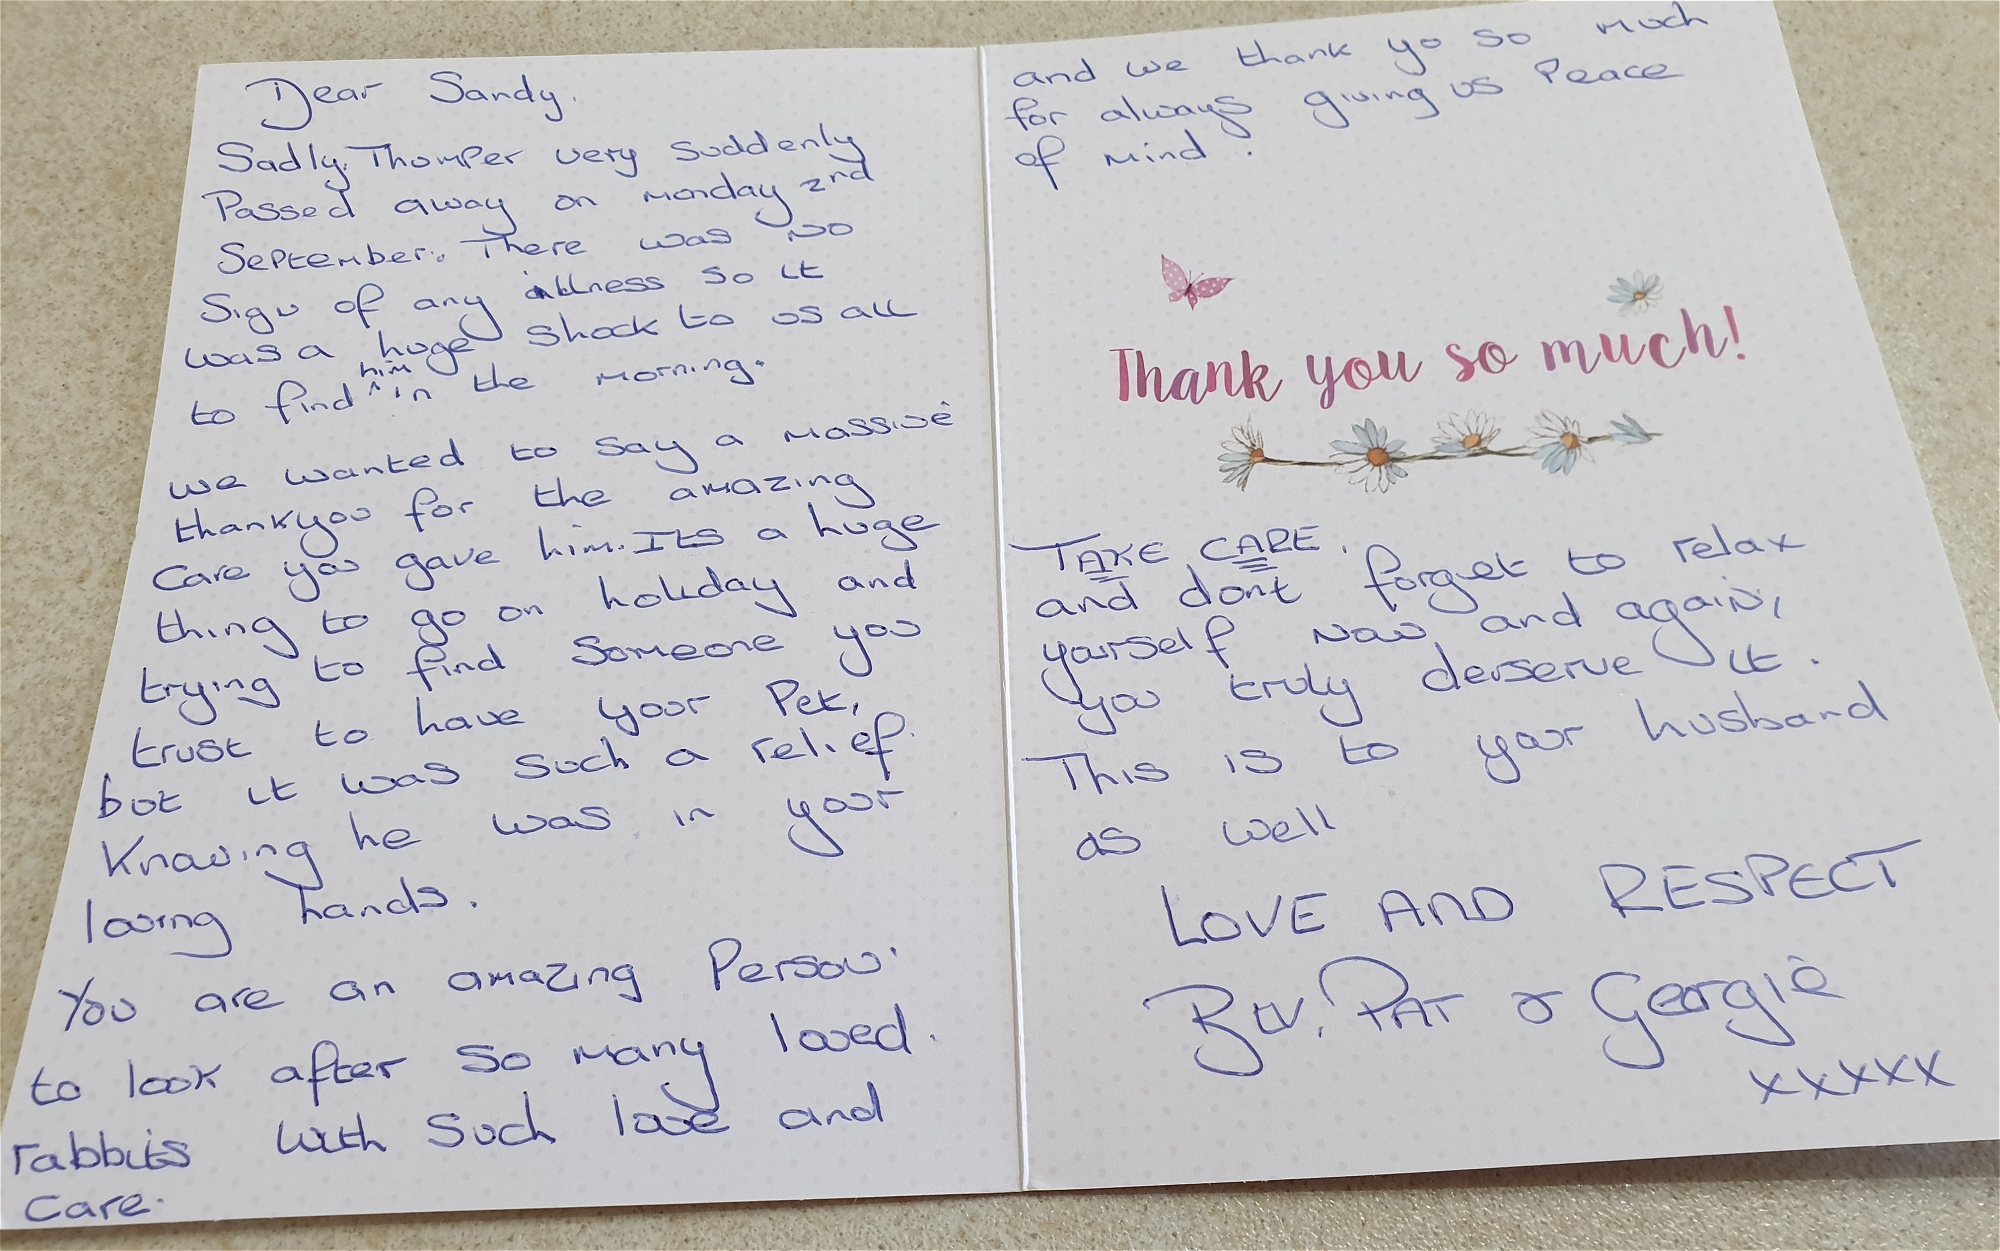 Dear Sandy.
Sadly, Thumper very suddenly
Passed away on monday 2nd
September. There was no
Sign of any illness so it
was a huge shock to us all
to find him in the morning.
we wanted to say a massive
thankyou for the amazing
Care you gave him. Its a huge
thing to go on holiday and
trying to find someone you
trust to have your Pet,
but it was such a relief
Knowing he was in your
loving hands.
You are an amazing Person
to look after so many loved
rabbits with such love and
Care.
and we thank yo so much
for always giving us Peace
of mind.
Thank you so much!
TAKE CARE.
and dont forget to relax
yourself now and again,
you truly derserve it.
This is to your husband
as well
LOVE AND RESPECT
Bev, PAT & Georgie
xxxxx